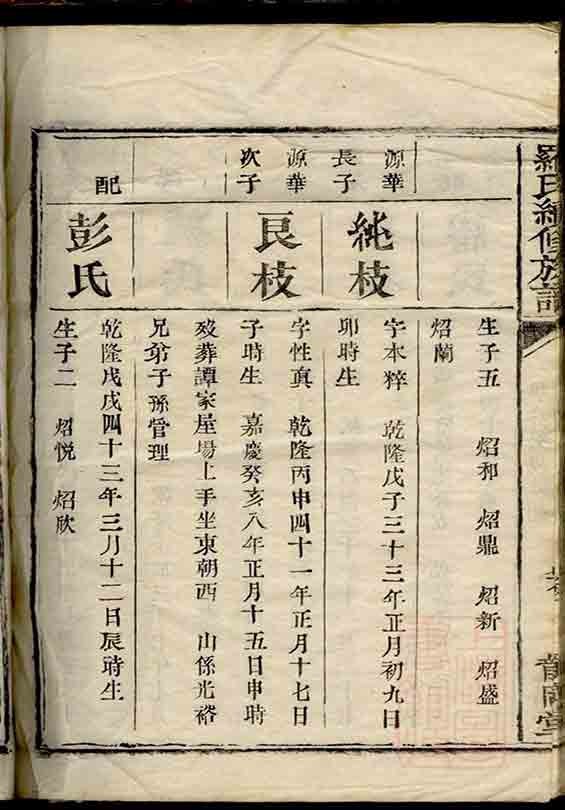 羅氏續修族譜
生子五 炤和 炤鼎 炤新 炤盛
炤蘭
源華
長子
純枝
字本粹 乾隆戊子三十三年正月初九日
卯時生
源華
次子
良枝
字性真 乾隆丙申四十一年正月十七日
子時生 嘉慶癸亥八年正月十五日申時
歿葬譚家屋場上手坐東朝西 山係光裕
兄弟子孫管理
配
彭氏
乾隆戊戌四十三年三月十二日辰時生
生子二 炤悅 炤欣